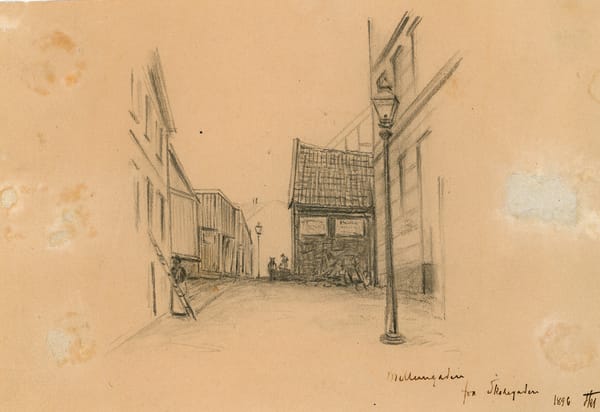 Mellemgaden
fra Skolegaden 1896